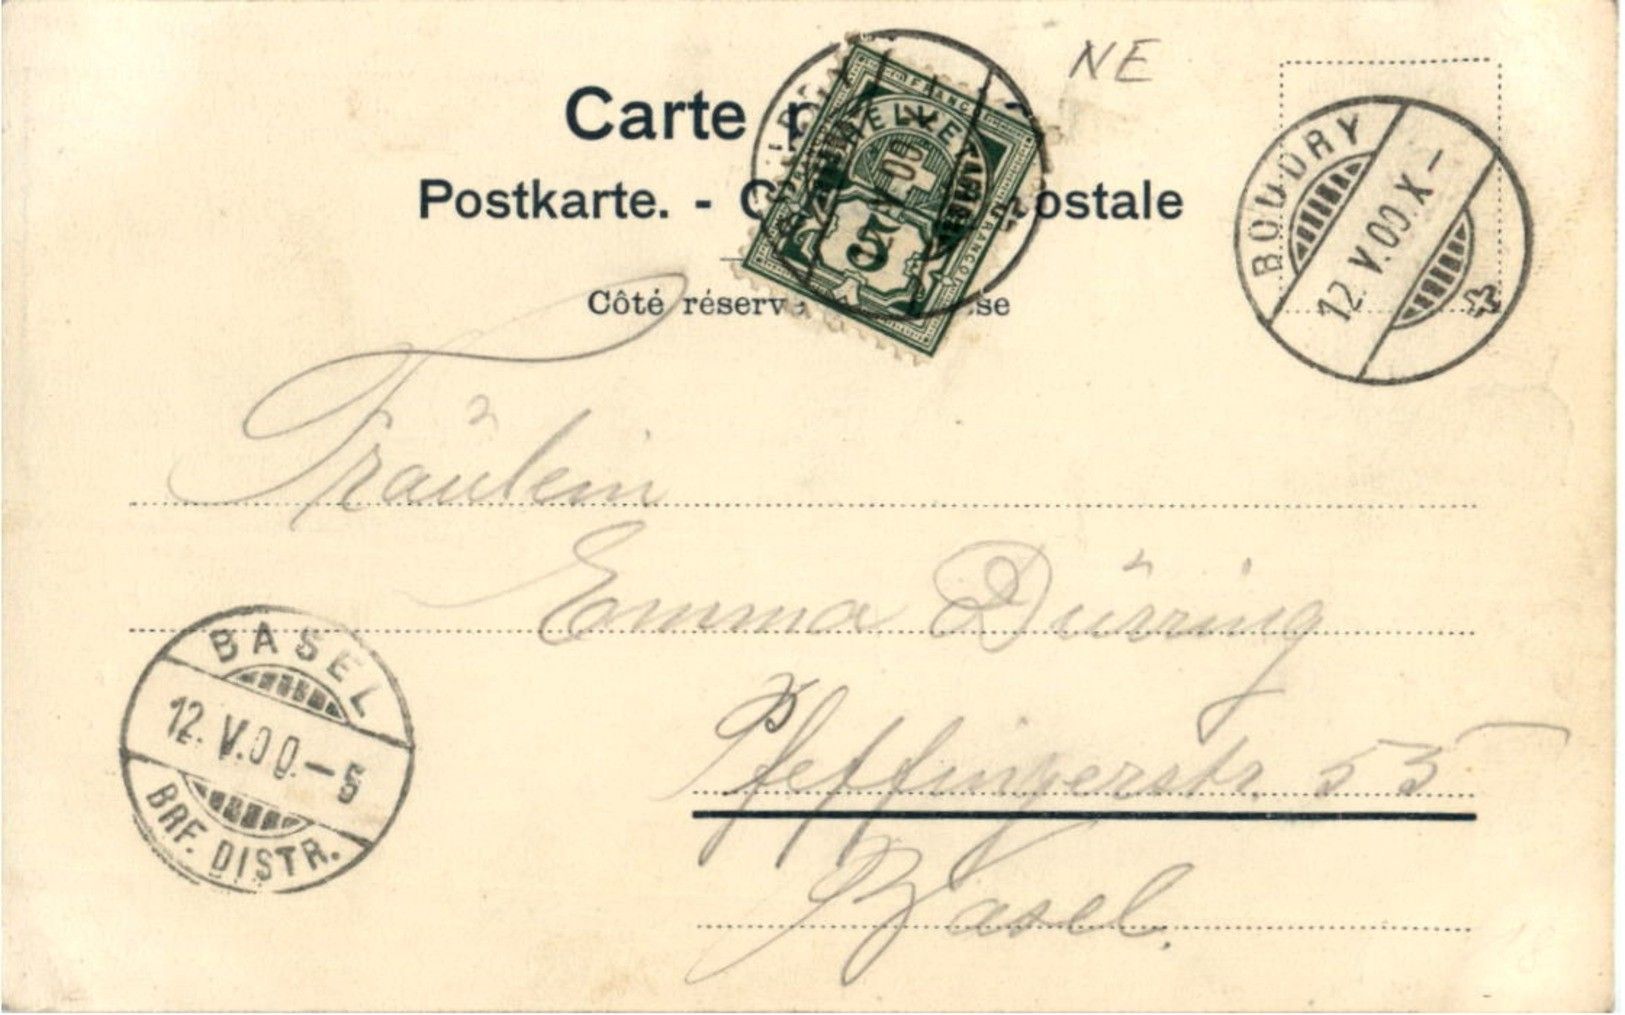 NE
Carte p
Postkarte. - C ostale
Côté réservé se
FRANCO HELVETIA FRANCO
5
BOUDRY
12. V. 00. X -
Fräulein
Emma Dürring
Pfeffingerstr. 55
Basel.
BASEL
12. V. 00. - 5
BRF. DISTR.